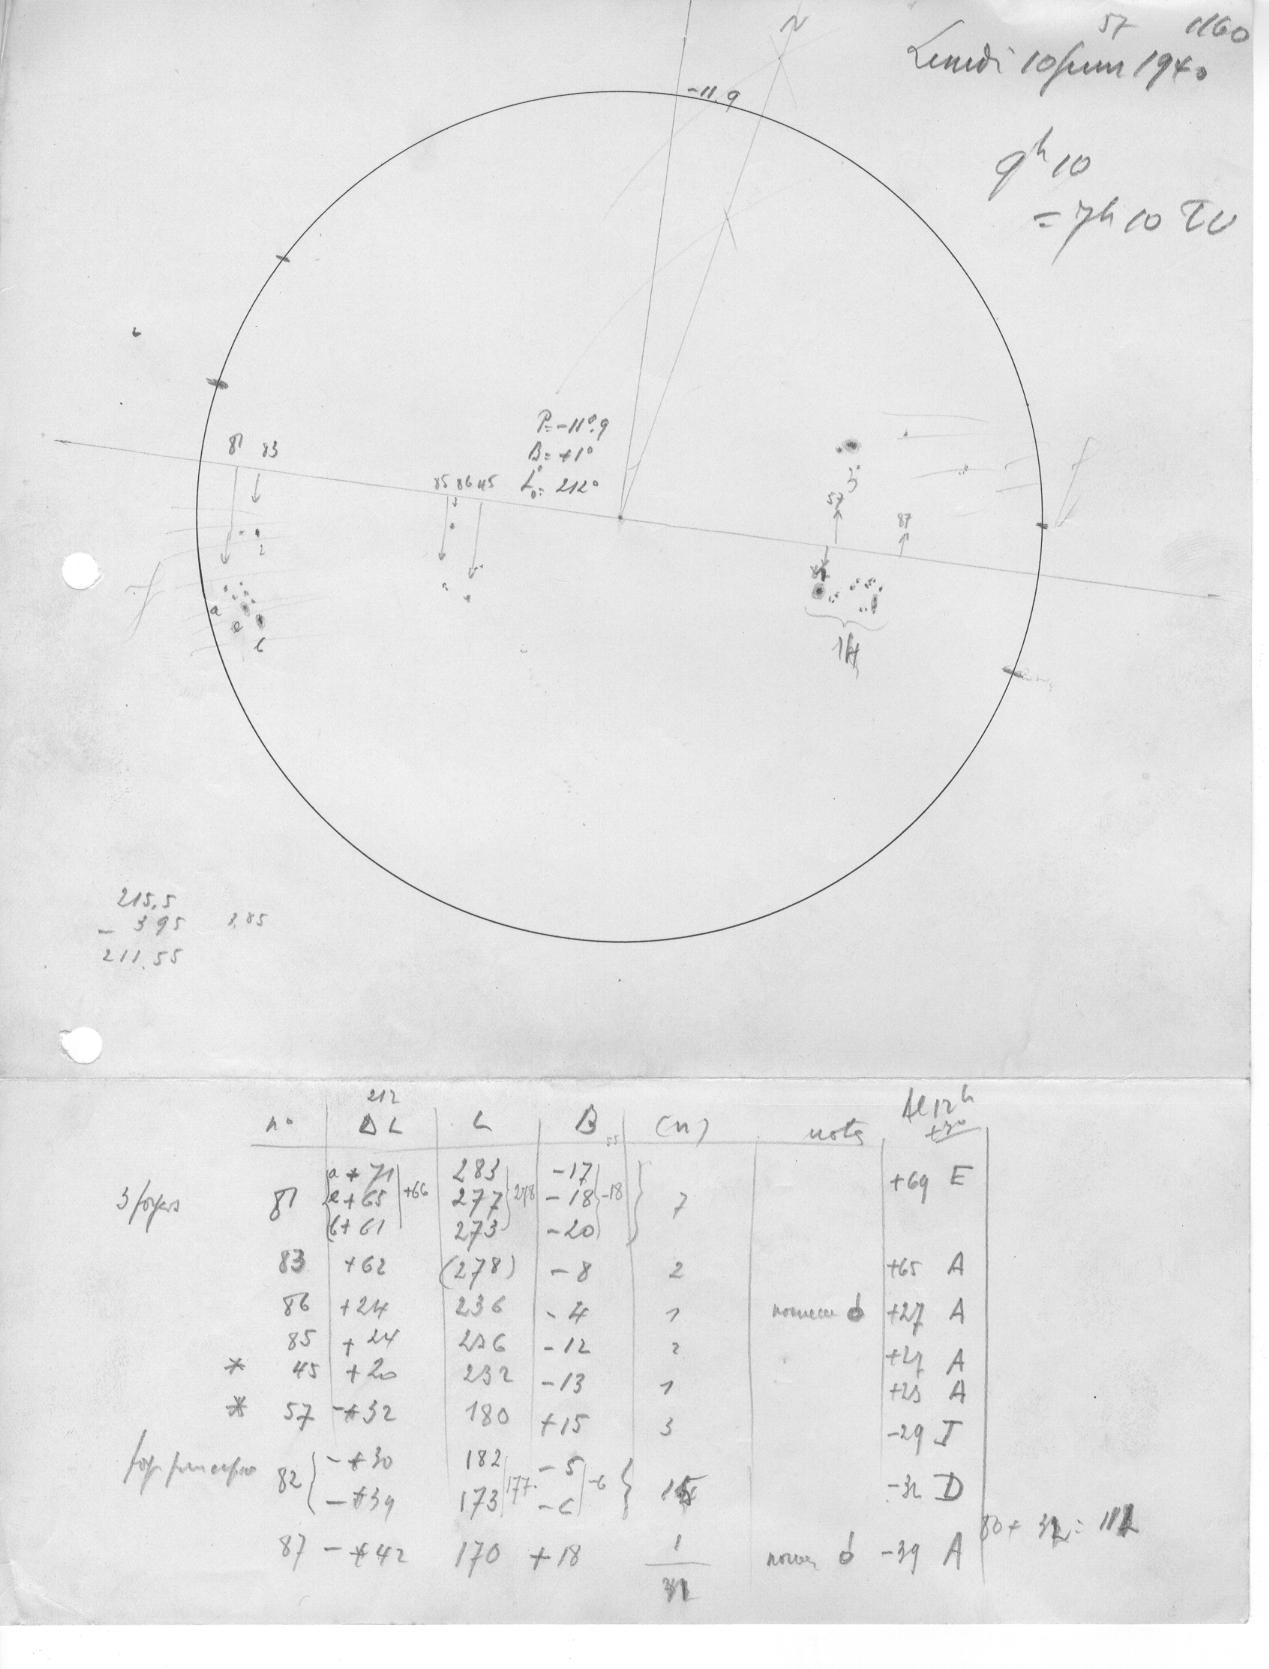 57 1160
Lundi 10 juin 1940
N
-11.9
9h10
= 7h10 TU
P=-11°.9
B=+1°
L°= 212°
81 83
85 86 45
57
87
82
a
e
b
f
f
14
215,5
- 3 95 3,85
211.55
212
n° ΔL L B (n) notes Al 12h
3 foyers 81 a +71 283 -17
e +65 +66 277 278 -18 -18 7 +69 E
b +61 273 -20
83 +62 (278) -8 2 +65 A
86 +24 236 -4 1 nouveau +27 A
85 +24 236 -12 2 +27 A
* 45 +20 232 -13 1 +23 A
* 57 -32 180 +15 3 -29 J
82 -30 182 -5
-39 173 177 -6 -6 -32 D
87 -42 170 +18 1 nouv -39 A
80+